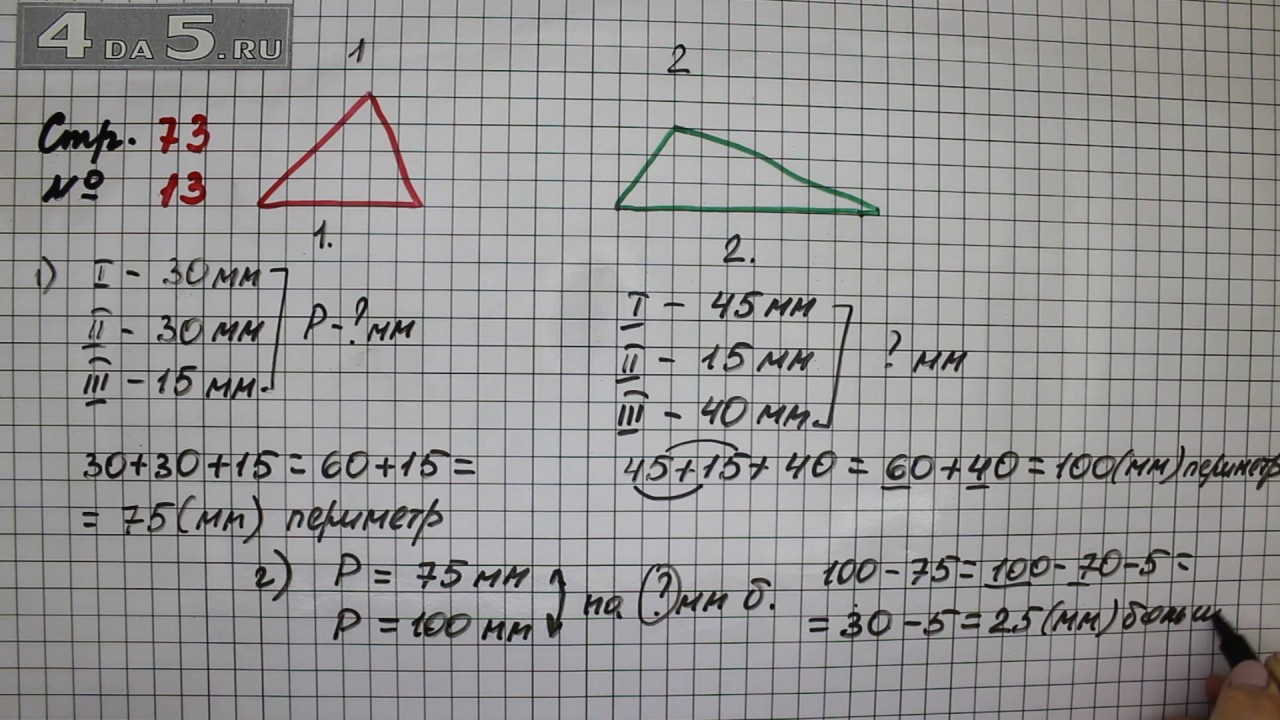 4DA5.RU
Стр. 73
№ 13
1
2
1.
1) I - 30 мм
II - 30 мм
III - 15 мм.
P - ? мм
2.
I - 45 мм
II - 15 мм
III - 40 мм.
? мм
30+30+15 = 60+15 =
= 75 (мм) периметр
45+15+40 = 60+40 = 100 (мм) периметр
2) P = 75 мм
P = 100 мм
на ? мм б.
100-75 = 100-70-5 =
= 30-5 = 25 (мм) больш